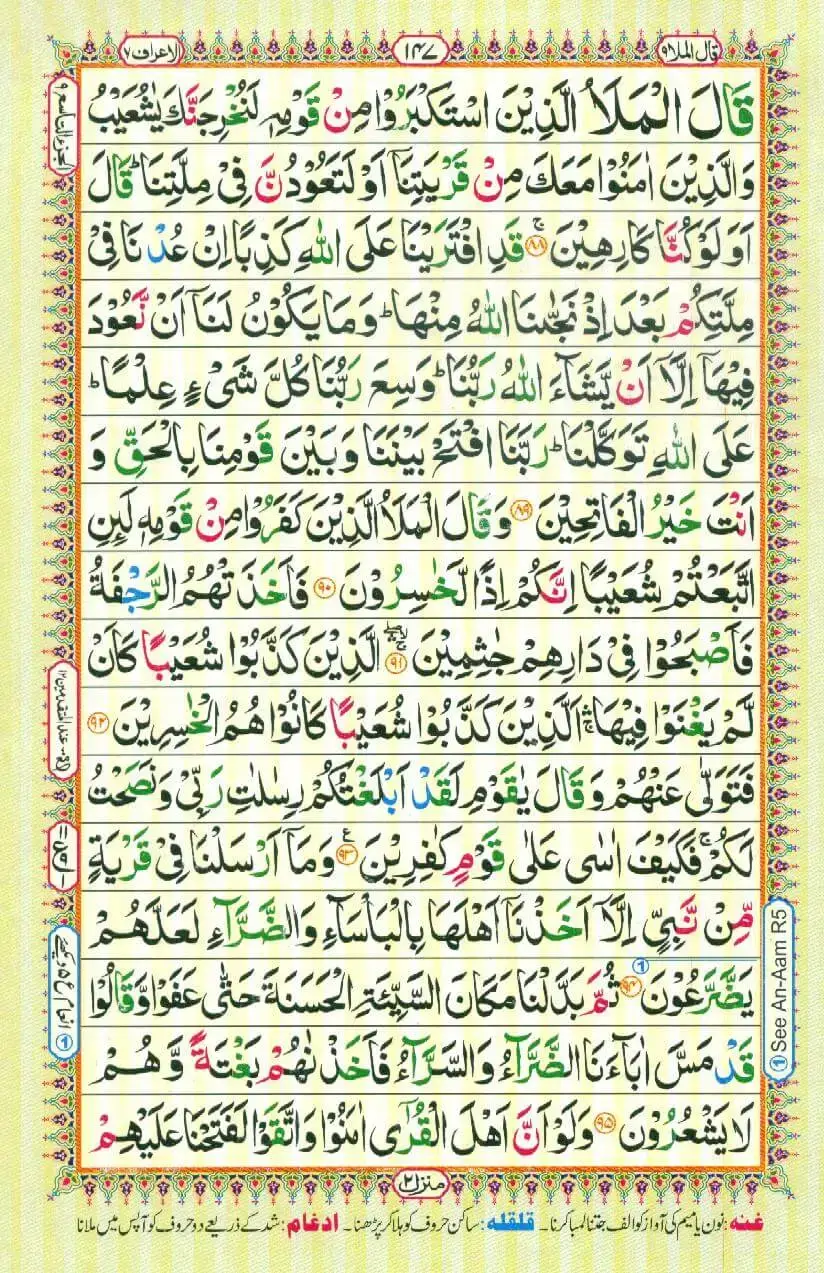 قال الملا ۹
۱۴۷
الاعراف ۷
الجزء التاسع ۹
قَالَ الْمَلَاُ الَّذِيْنَ اسْتَكْبَرُوْا مِنْ قَوْمِهٖ لَنُخْرِجَنَّكَ يٰشُعَيْبُ
وَالَّذِيْنَ اٰمَنُوْا مَعَكَ مِنْ قَرْيَتِنَاۤ اَوْ لَتَعُوْدُنَّ فِيْ مِلَّتِنَا ؕ قَالَ
اَوَلَوْ كُنَّا كَارِهِيْنَ ۚ ﴿۸۸﴾ قَدِ افْتَرَيْنَا عَلَى اللّٰهِ كَذِبًا اِنْ عُدْنَا فِيْ
مِلَّتِكُمْ بَعْدَ اِذْ نَجّٰىنَا اللّٰهُ مِنْهَا ؕ وَمَا يَكُوْنُ لَنَاۤ اَنْ نَّعُوْدَ
فِيْهَاۤ اِلَّاۤ اَنْ يَّشَآءَ اللّٰهُ رَبُّنَا ؕ وَسِعَ رَبُّنَا كُلَّ شَيْءٍ عِلْمًا ؕ
عَلَى اللّٰهِ تَوَكَّلْنَا ؕ رَبَّنَا افْتَحْ بَيْنَنَا وَبَيْنَ قَوْمِنَا بِالْحَقِّ وَ
اَنْتَ خَيْرُ الْفَاتِحِيْنَ ﴿۸۹﴾ وَقَالَ الْمَلَاُ الَّذِيْنَ كَفَرُوْا مِنْ قَوْمِهٖ لَئِنِ
اتَّبَعْتُمْ شُعَيْبًا اِنَّكُمْ اِذًا لَّخٰسِرُوْنَ ﴿۹۰﴾ فَاَخَذَتْهُمُ الرَّجْفَةُ
فَاَصْبَحُوْا فِيْ دَارِهِمْ جٰثِمِيْنَ ﴿۹۱﴾ الَّذِيْنَ كَذَّبُوْا شُعَيْبًا كَاَنْ
لَّمْ يَغْنَوْا فِيْهَا ۛۚ اَلَّذِيْنَ كَذَّبُوْا شُعَيْبًا كَانُوْا هُمُ الْخٰسِرِيْنَ ﴿۹۲﴾
فَتَوَلّٰى عَنْهُمْ وَقَالَ يٰقَوْمِ لَقَدْ اَبْلَغْتُكُمْ رِسٰلٰتِ رَبِّيْ وَنَصَحْتُ
لَكُمْ ۚ فَكَيْفَ اٰسٰى عَلٰى قَوْمٍ كٰفِرِيْنَ ﴿۹۳﴾ ع وَمَاۤ اَرْسَلْنَا فِيْ قَرْيَةٍ
مِّنْ نَّبِيٍّ اِلَّاۤ اَخَذْنَاۤ اَهْلَهَا بِالْبَاْسَآءِ وَالضَّرَّآءِ لَعَلَّهُمْ
يَضَّرَّعُوْنَ ﴿۹۴﴾ ① ثُمَّ بَدَّلْنَا مَكَانَ السَّيِّئَةِ الْحَسَنَةَ حَتّٰى عَفَوْا وَّقَالُوْا
قَدْ مَسَّ اٰبَآءَنَا الضَّرَّآءُ وَالسَّرَّآءُ فَاَخَذْنٰهُمْ بَغْتَةً وَّهُمْ
لَا يَشْعُرُوْنَ ﴿۹۵﴾ وَلَوْ اَنَّ اَهْلَ الْقُرٰۤى اٰمَنُوْا وَاتَّقَوْا لَفَتَحْنَا عَلَيْهِمْ
① See An-Aam R5
① انعام ع ۵ دیکھئے
منزل ۲
غنه: نون یا میم کی آواز کو الف جتنا لمبا کرنا۔ قلقله: ساکن حروف کو ہلا کر پڑھنا۔ ادغام: شد کے ذریعے دو حروف کو آپس میں ملانا